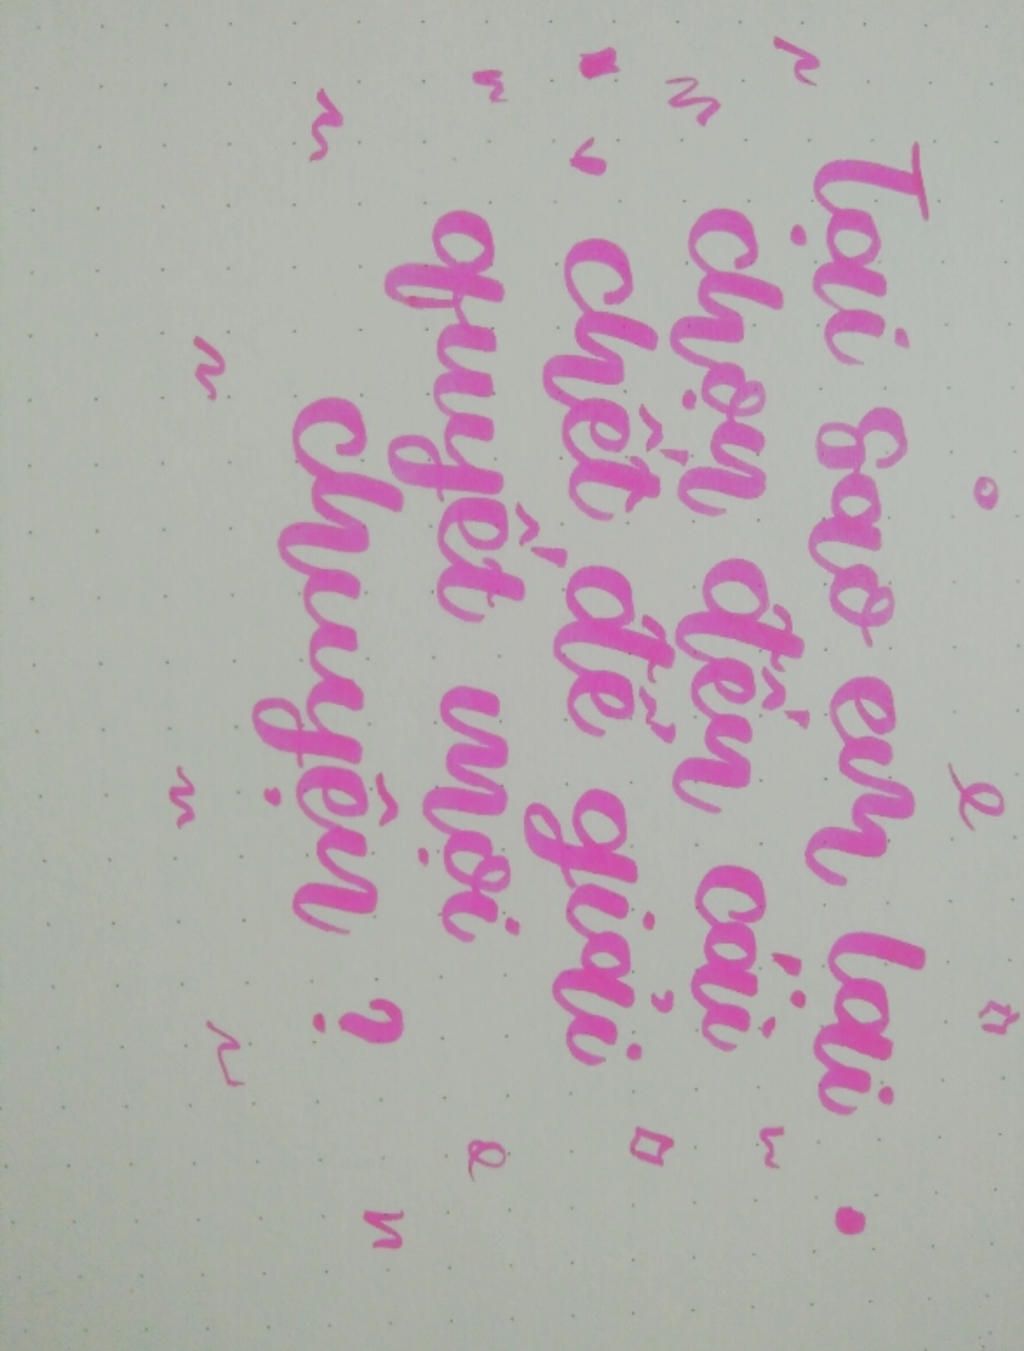 Tại sao em lại
chọn đến cái
chết để giải
quyết mọi
chuyện ?